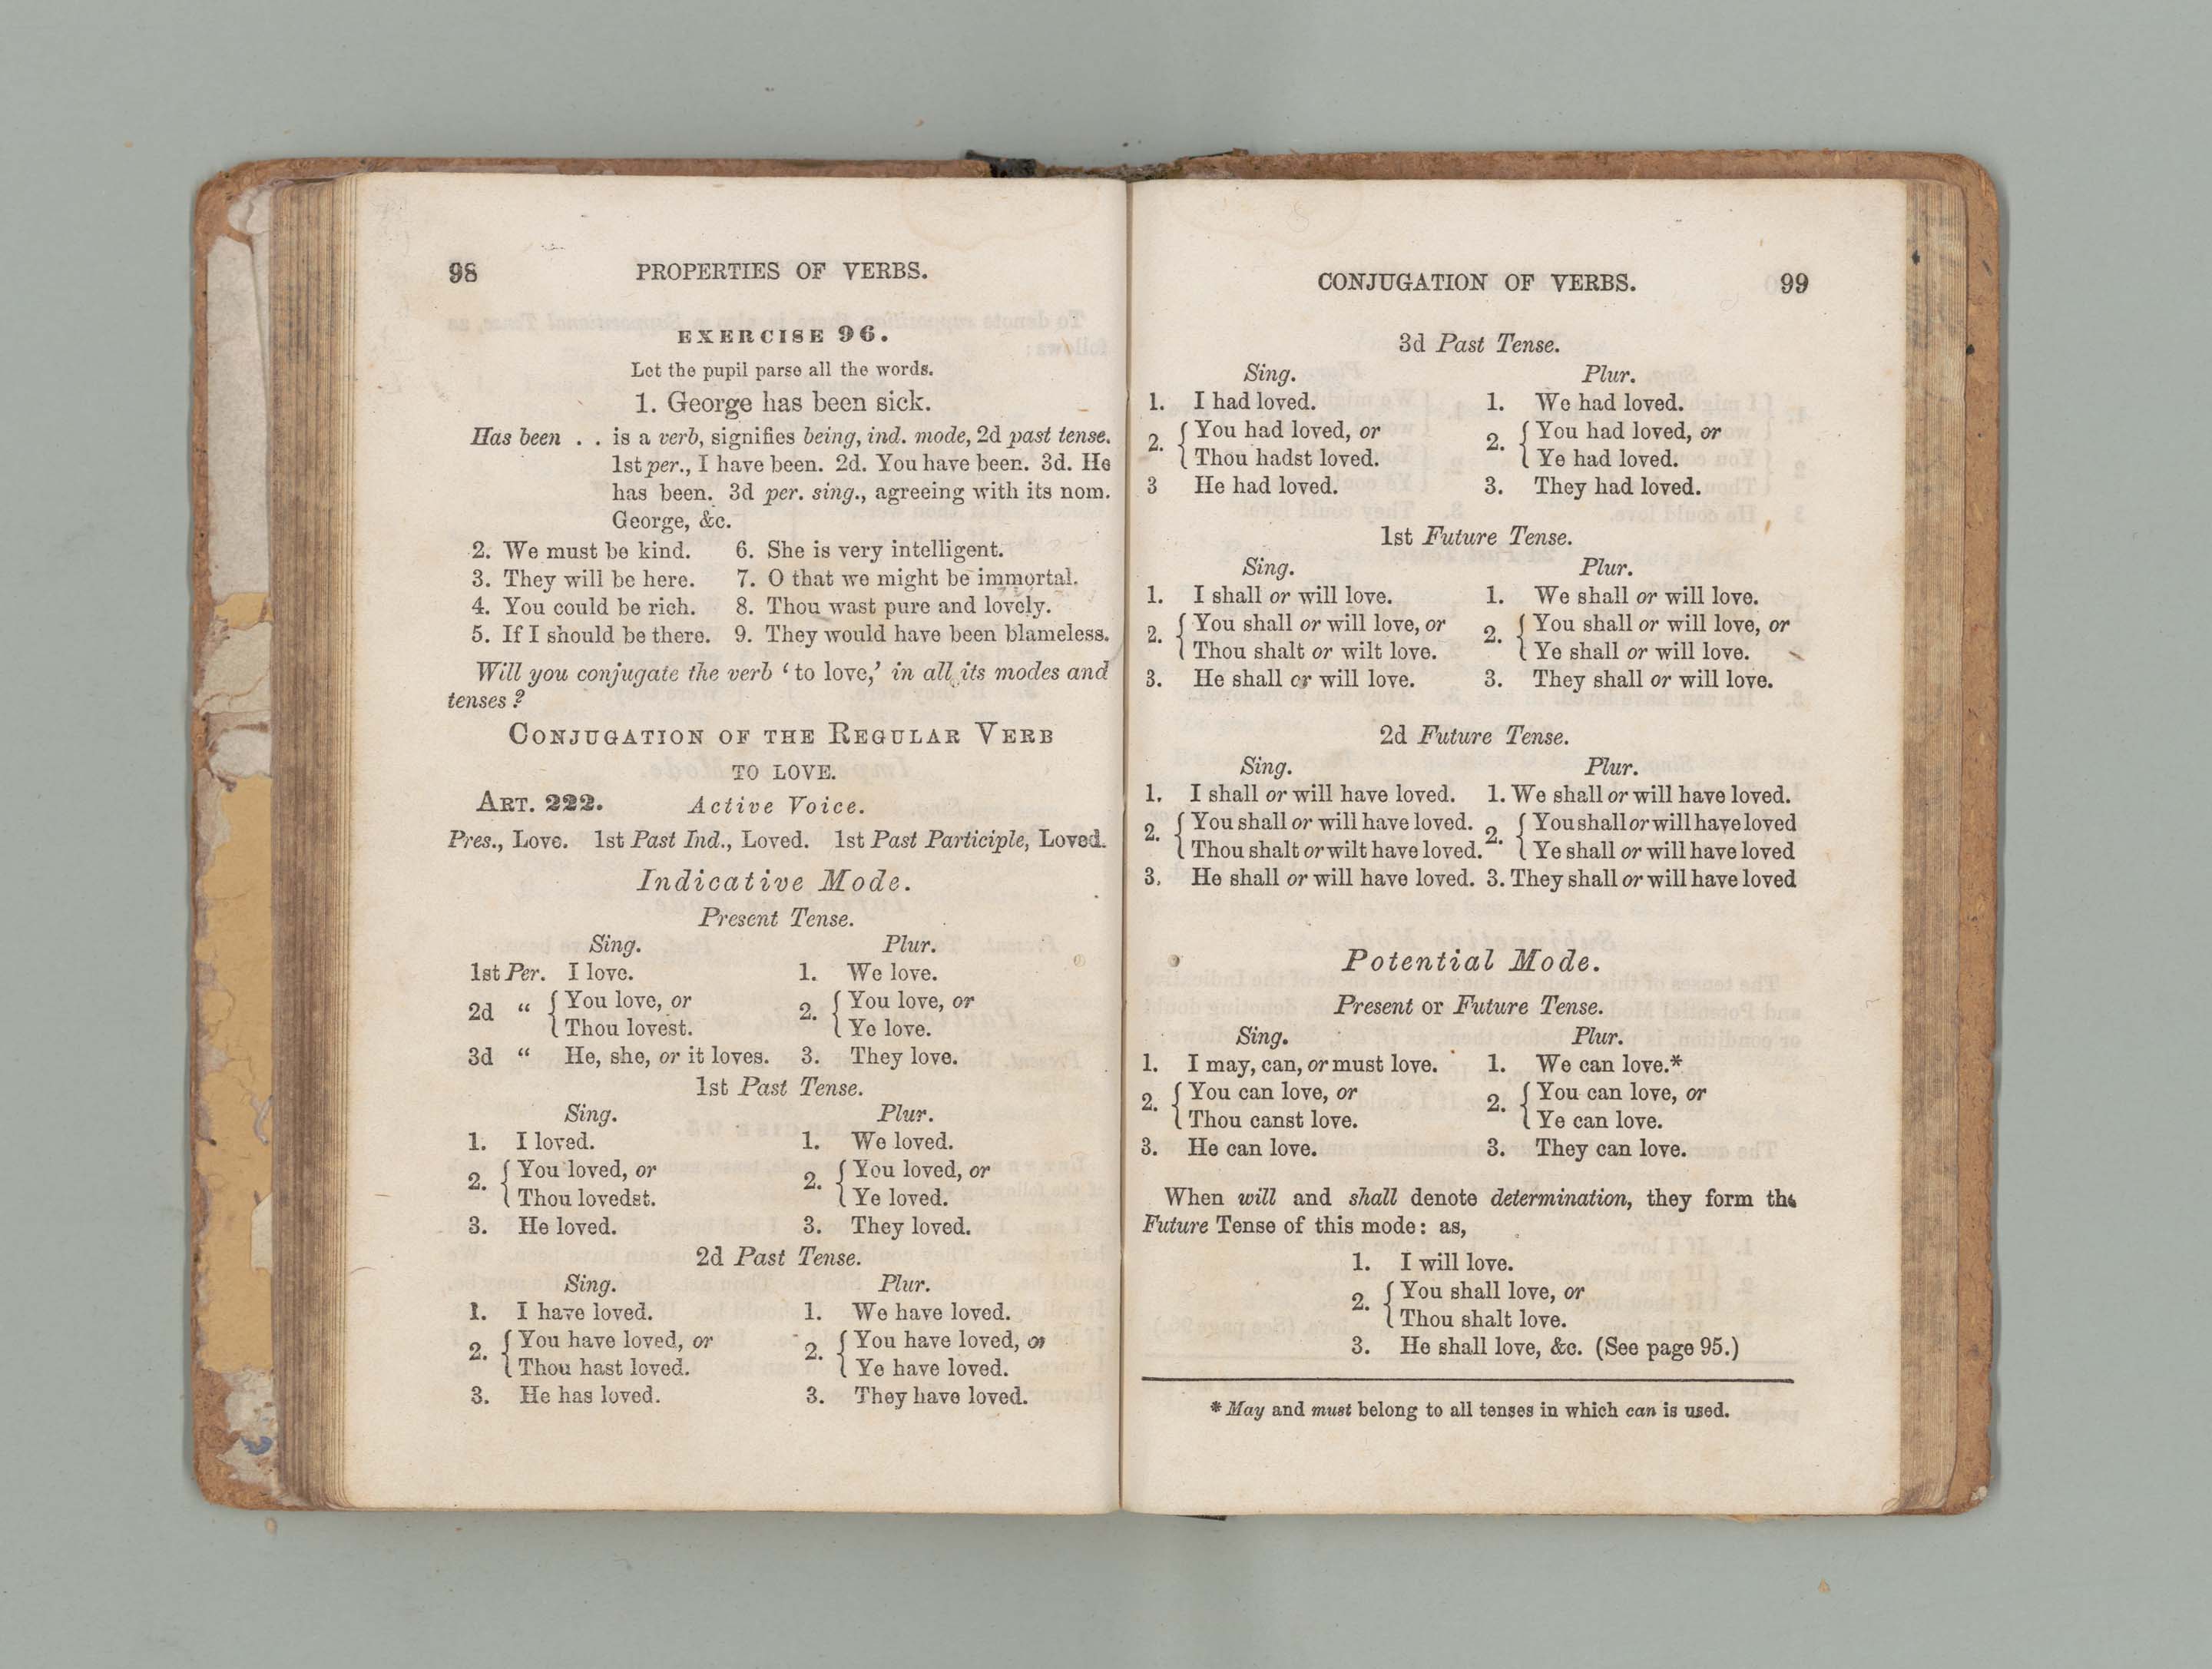 98 PROPERTIES OF VERBS.
EXERCISE 96.
Let the pupil parse all the words.
1. George has been sick.
Has been . . is a verb, signifies being, ind. mode, 2d past tense.
1st per., I have been. 2d. You have been. 3d. He
has been. 3d per. sing., agreeing with its nom.
George, &c.
2. We must be kind. 6. She is very intelligent.
3. They will be here. 7. O that we might be immortal.
4. You could be rich. 8. Thou wast pure and lovely.
5. If I should be there. 9. They would have been blameless.
Will you conjugate the verb ‘to love,’ in all its modes and
tenses?
CONJUGATION OF THE REGULAR VERB
TO LOVE.
ART. 222. Active Voice.
Pres., Love. 1st Past Ind., Loved. 1st Past Participle, Loved.
Indicative Mode.
Present Tense.
Sing. Plur.
1st Per. I love. 1. We love.
2d “ { You love, or 2. { You love, or
Thou lovest. Ye love.
3d “ He, she, or it loves. 3. They love.
1st Past Tense.
Sing. Plur.
1. I loved. 1. We loved.
2. { You loved, or 2. { You loved, or
Thou lovedst. Ye loved.
3. He loved. 3. They loved.
2d Past Tense.
Sing. Plur.
1. I have loved. 1. We have loved.
2. { You have loved, or 2. { You have loved, or
Thou hast loved. Ye have loved.
3. He has loved. 3. They have loved.
CONJUGATION OF VERBS. 99
3d Past Tense.
Sing. Plur.
1. I had loved. 1. We had loved.
2. { You had loved, or 2. { You had loved, or
Thou hadst loved. Ye had loved.
3 He had loved. 3. They had loved.
1st Future Tense.
Sing. Plur.
1. I shall or will love. 1. We shall or will love.
2. { You shall or will love, or 2. { You shall or will love, or
Thou shalt or wilt love. Ye shall or will love.
3. He shall or will love. 3. They shall or will love.
2d Future Tense.
Sing. Plur.
1. I shall or will have loved. 1. We shall or will have loved.
2. { You shall or will have loved. 2. { You shall or will have loved
Thou shalt or wilt have loved. Ye shall or will have loved
3. He shall or will have loved. 3. They shall or will have loved
Potential Mode.
Present or Future Tense.
Sing. Plur.
1. I may, can, or must love. 1. We can love.*
2. { You can love, or 2. { You can love, or
Thou canst love. Ye can love.
3. He can love. 3. They can love.
When will and shall denote determination, they form the
Future Tense of this mode: as,
1. I will love.
2. { You shall love, or
Thou shalt love.
3. He shall love, &c. (See page 95.)
* May and must belong to all tenses in which can is used.